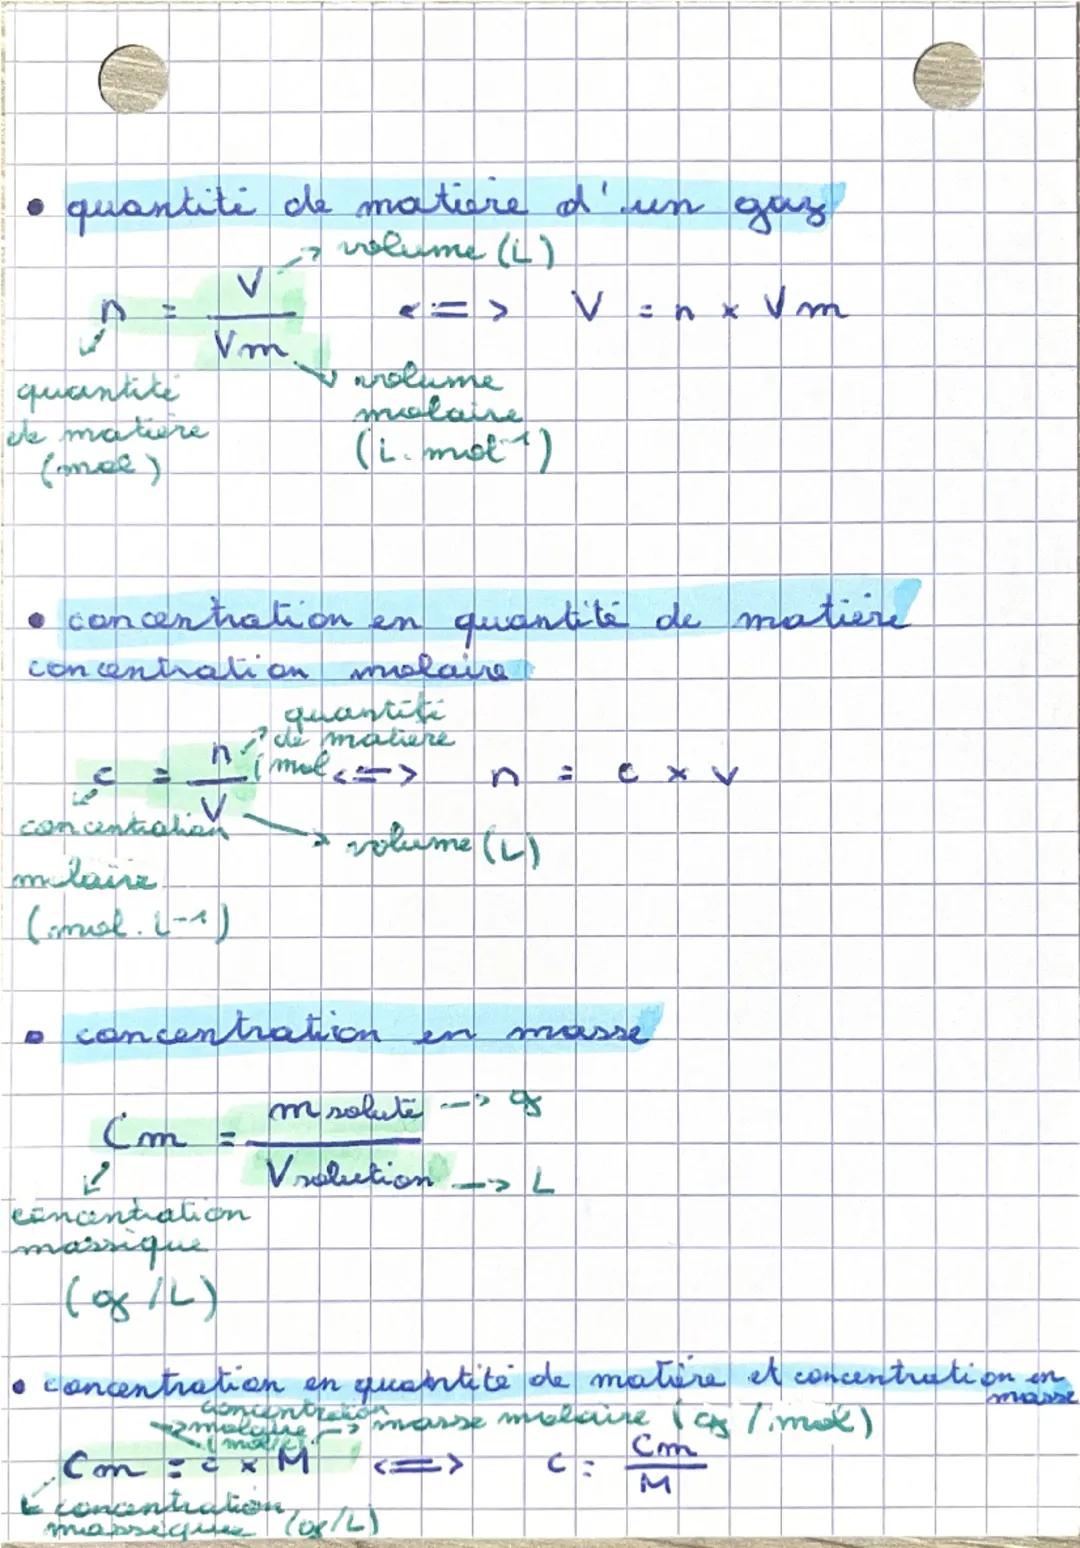 • quantité de matière d'un gaz
→ volume (L)
n = V / Vm <=> V = n x Vm
quantité de matière (mol)
volume molaire (L. mol⁻¹)
• concentration en quantité de matière
concentration molaire
quantité de matière (mol
c = n / V <=> n = c x V
concentration molaire (mol. L⁻¹)
→ volume (L)
• concentration en masse
Cm = m soluté / V solution
→ g
→ L
concentration massique
(g /L)
• concentration en quantité de matière et concentration en masse
concentration molaire (mol/L)
→ masse molaire (g / mol)
Cm = c x M <=> c = Cm / M
concentration massique (g/L)